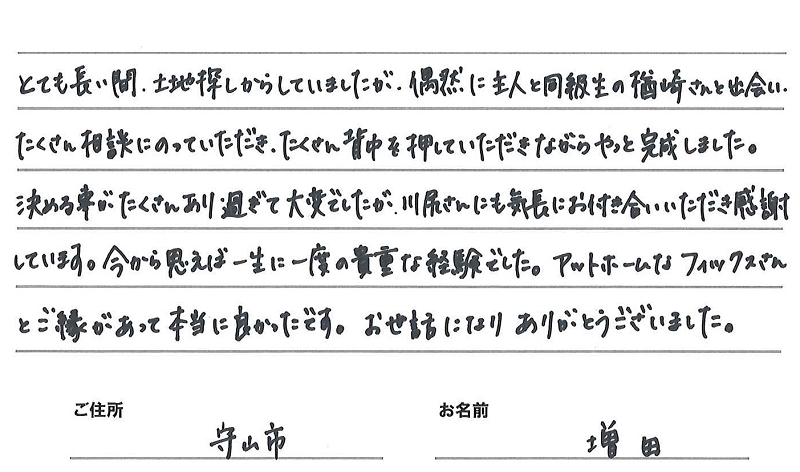 とても長い間、土地探しからしていましたが、偶然に主人と同級生の楢崎さんと出会い、
たくさん相談にのっていただき、たくさん背中を押していただきながらやっと完成しました。
決める事がたくさんあり過ぎて大変でしたが、川尻さんにも気長にお付き合いいただき感謝
しています。今から思えば一生に一度の貴重な経験でした。アットホームなフィックスさん
とご縁があって本当に良かったです。お世話になりありがとうございました。
ご住所
お名前
守山市
増田